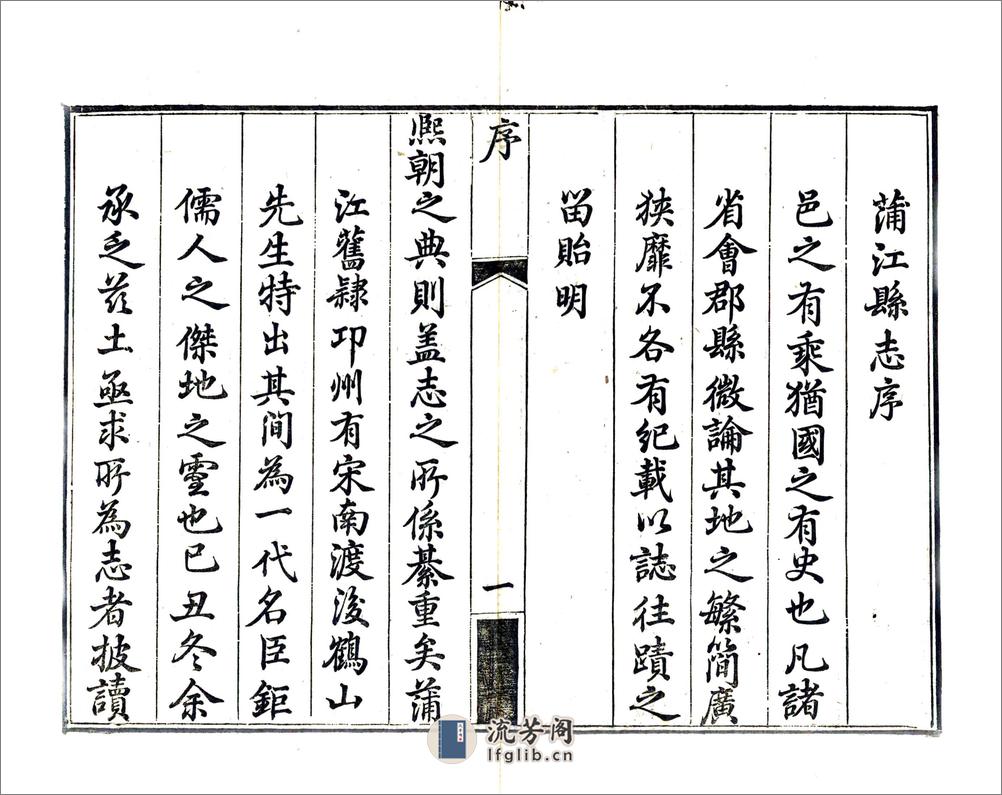 蒲江縣志序
邑之有乘猶國之有史也凡諸
省會郡縣微論其地之繁簡廣
狹靡不各有紀載以誌往蹟之
畱貽明
序
一
熈朝之典則盖志之所係綦重矣蒲
江舊隷邛州有宋南渡後鶴山
先生特出其間為一代名臣鉅
儒人之傑地之靈也已丑冬余
承乏茲土亟求所為志者披讀
流芳阁
lfglib.cn